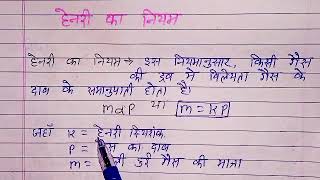 हेनरी का नियम
हेनरी का नियम → इस नियमानुसार, किसी गैस
की द्रव में विलेयता गैस के
दाब के समानुपाती होता है।
m α P या m = KP
जहाँ K = हेनरी स्थिरांक
P = का दाब
m = गैस की मात्रा